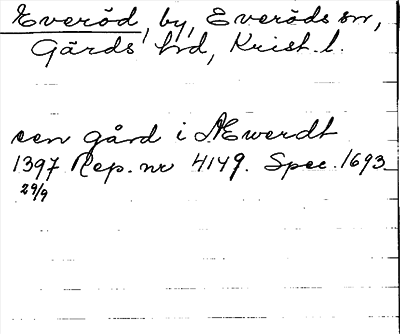 Everöd, by, Everöds sn,
Gärds hd, Krist. l.
een gård i Æwerdt
1397 Rep. nr 4149. Spec. 1693
29/9